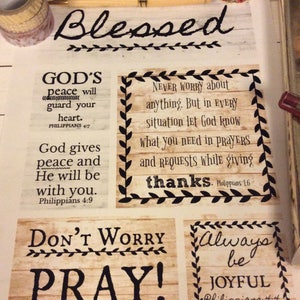 Blessed
GOD'S
peace will
guard your
heart.
PHILIPPIANS 4:7
God gives
peace and
He will be
with you.
Philippians 4:9
NEVER WORRY ABOUT
anything. BUT IN EVERY
SITUATION LET GOD KNOW
WHAT YOU NEED IN PRAYERS
AND REQUESTS WHILE GIVING
thanks. Philippians 4:6
DON'T WORRY
PRAY!
Always
be
JOYFUL
Philippians 4:4